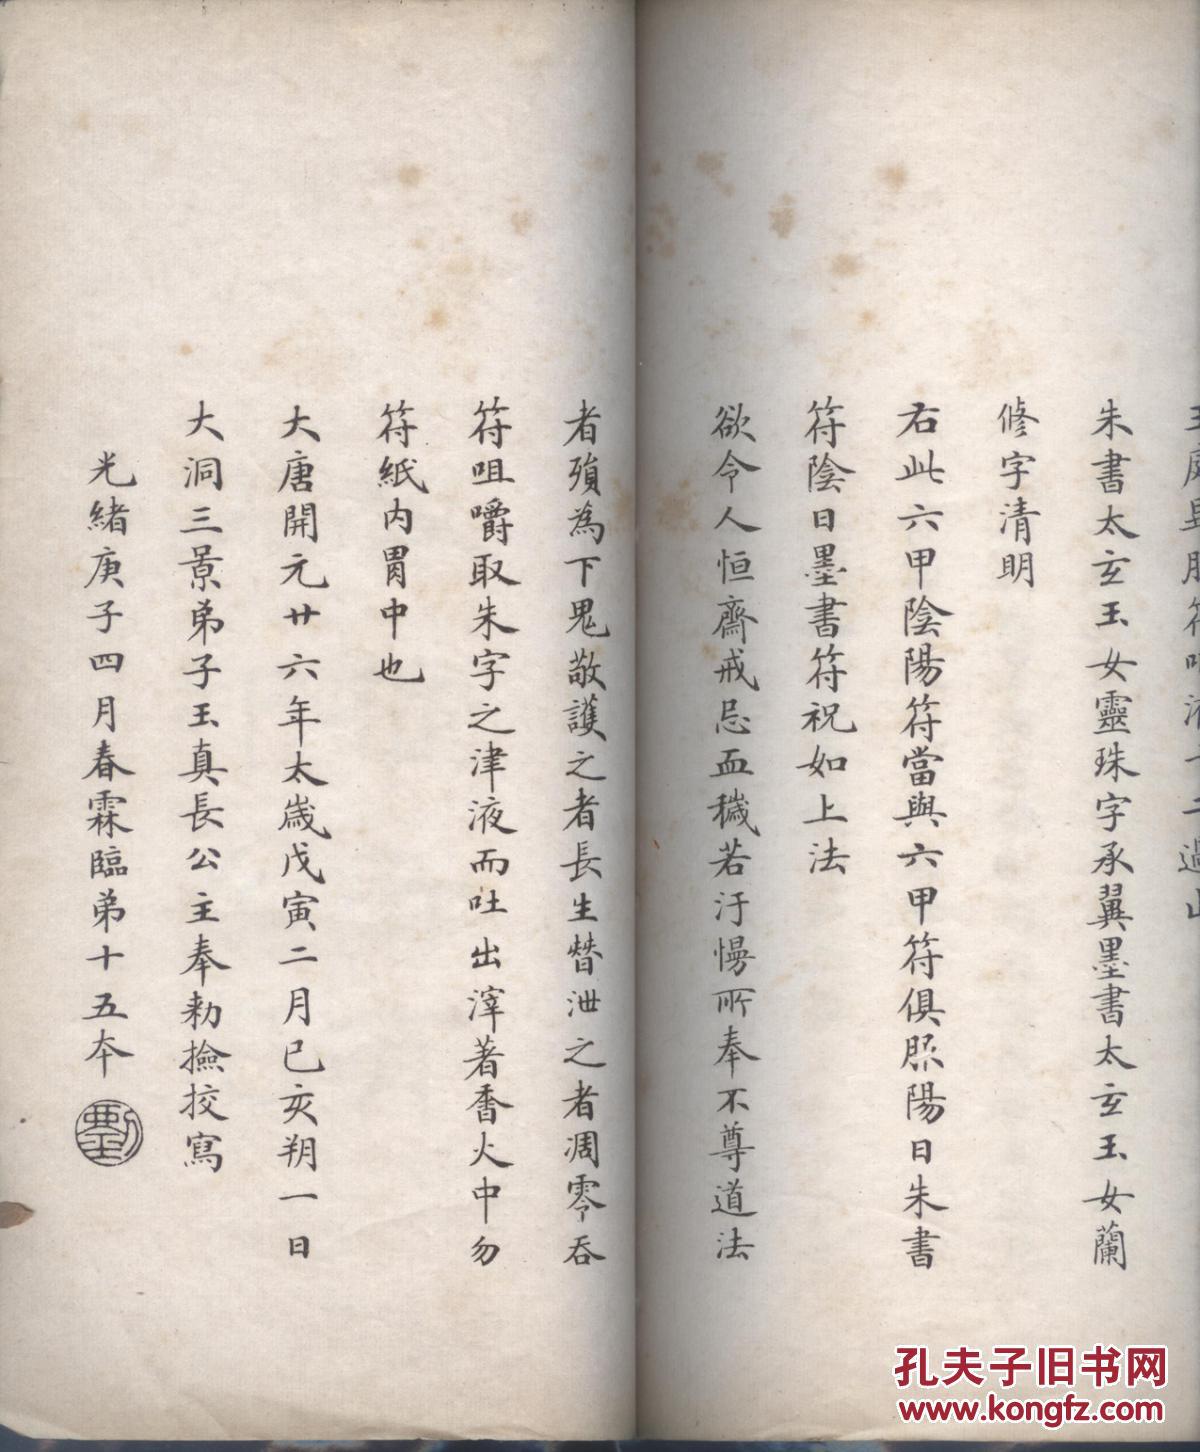 玉庭畢服符叩液十二過止
朱書太玄玉女靈珠字承翼墨書太玄玉女蘭
修字清明
右此六甲陰陽符當與六甲符俱服陽日朱書
符陰日墨書符祝如上法
欲令人恒齋戒忌血穢若汙慢所奉不尊道法
者殞為下鬼敬護之者長生暜泄之者凋零吞
符咀嚼取朱字之津液而吐出滓著香火中勿
符紙內胃中也
大唐開元廿六年太歲戊寅二月己亥朔一日
大洞三景弟子玉真長公主奉勅撿挍寫
光緒庚子四月春霖臨弟十五本
孔夫子旧书网
www.kongfz.com